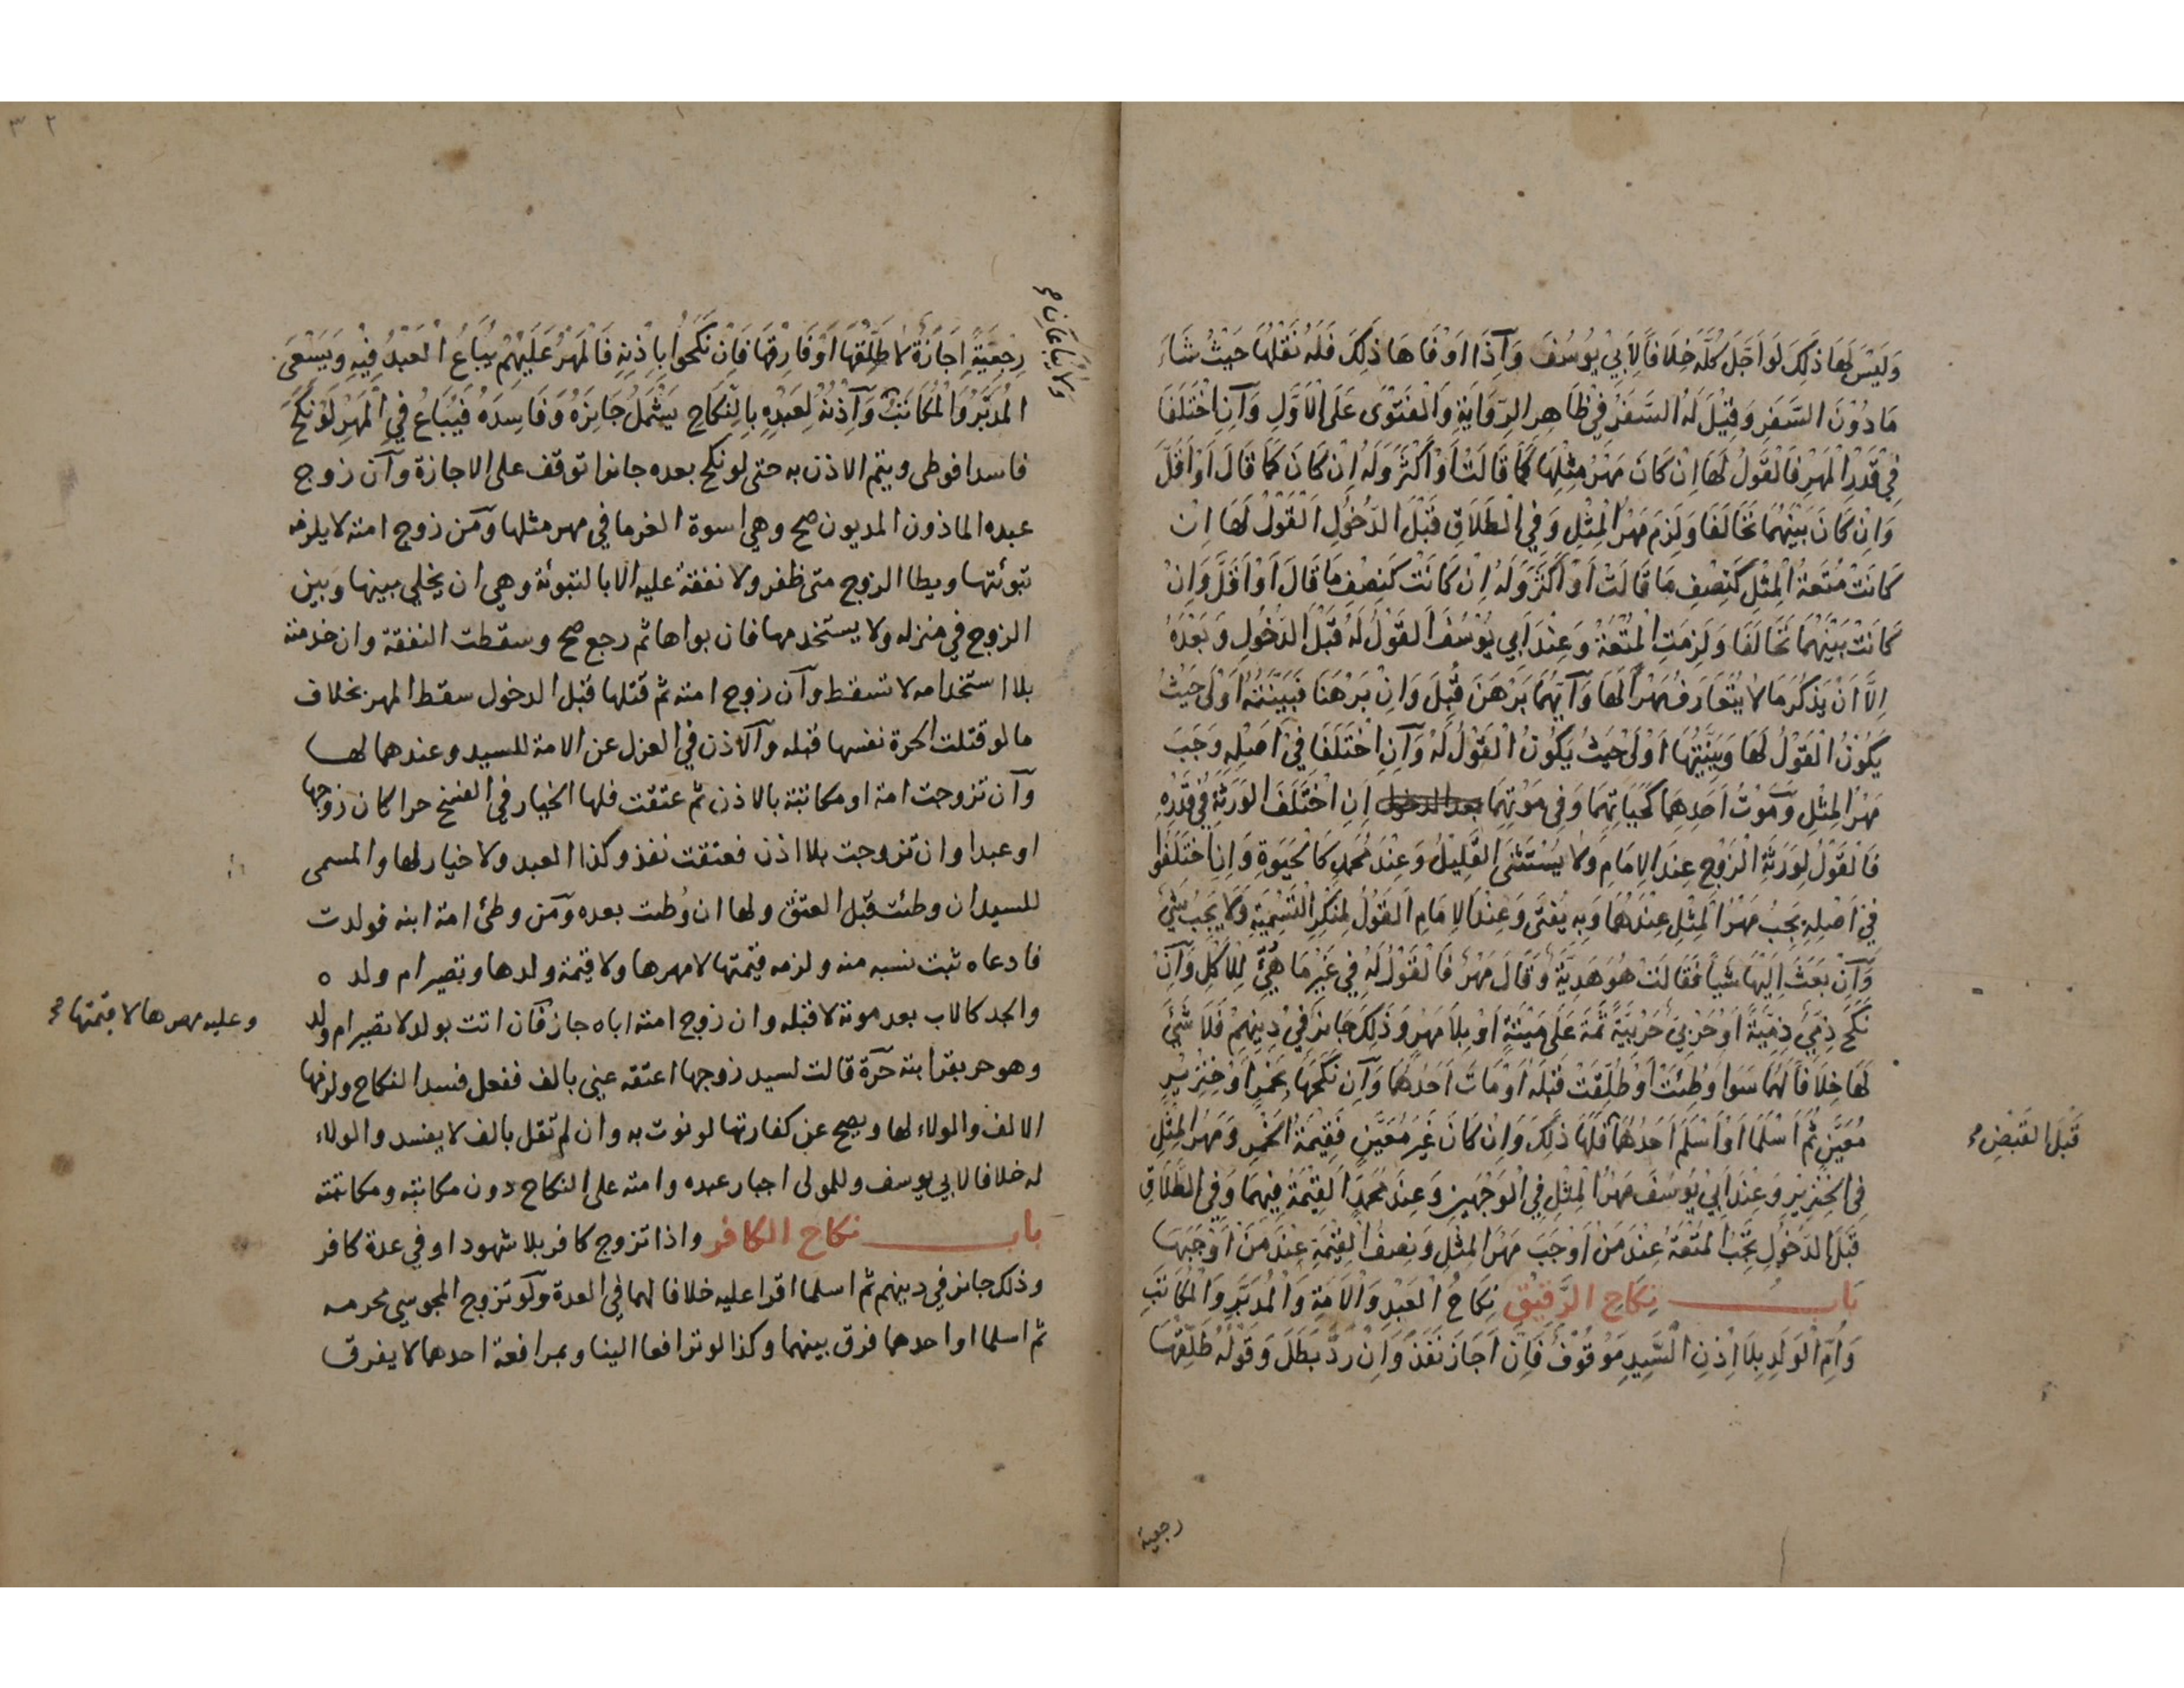 وَلَيْسَ لَهَا ذَلِكَ لَوْ اَجَّلَ كُلَّهُ خِلَافًا لِأَبِي يُوسُفَ وَاِذَا اَوْفَاهَا ذَلِكَ فَلَهُ نَقْلُهَا حَيْثُ شَاءَ
مَا دُوْنَ السَّفَرِ وَقِيْلَ لَهُ السَّفَرُ فِيْ ظَاهِرِ الرِّوَايَةِ وَالْفَتْوَى عَلَى الْاَوَّلِ وَاِنِ اخْتَلَفَا
فِيْ قَدْرِ الْمَهْرِ فَالْقَوْلُ لَهَا اِنْ كَانَ مَهْرُ مِثْلِهَا كَمَا قَالَتْ اَوْ اَكْثَرَ وَلَهُ اِنْ كَانَ كَمَا قَالَ اَوْ اَقَلَّ
وَاِنْ كَانَ بَيْنَهُمَا تَحَالَفَا وَلَزِمَ مَهْرُ الْمِثْلِ وَفِي الطَّلَاقِ قَبْلَ الدُّخُولِ الْقَوْلُ لَهَا اِنْ
كَانَتْ مُتْعَةُ الْمِثْلِ كَنِصْفِ مَا قَالَتْ اَوْ اَكْثَرَ وَلَهُ اِنْ كَانَتْ كَنِصْفِ مَا قَالَ اَوْ اَقَلَّ وَاِنْ
كَانَتْ بَيْنَهُمَا تَحَالَفَا وَلَزِمَتِ الْمُتْعَةُ وَعِنْدَ اَبِي يُوْسُفَ الْقَوْلُ لَهُ قَبْلَ الدُّخُولِ وَبَعْدَهُ
اِلَّا اَنْ يَذْكُرَ مَا لَا يُتَعَارَفُ مَهْرًا لَهَا وَاَيُّهُمَا بَرْهَنَ قُبِلَ وَاِنْ بَرْهَنَا فَبَيِّنَتُهُ اَوْلَى حَيْثُ
يَكُوْنُ الْقَوْلُ لَهَا وَبَيِّنَتُهَا اَوْلَى حَيْثُ يَكُوْنُ الْقَوْلُ لَهُ وَاِنِ اخْتَلَفَا فِيْ اَصْلِهِ وَجَبَ
مَهْرُ الْمِثْلِ وَمَوْتُ اَحَدِهِمَا كَحَيَاتِهِمَا وَفِي مَوْتِهِمَا بعد الدخول اِنِ اخْتَلَفَ الْوَرَثَةُ فِيْ قَدْرِهِ
فَالْقَوْلُ لِوَرَثَةِ الزَّوْجِ عِنْدَ الْاِمَامِ وَلَا يُسْتَثْنَى الْقَلِيْلُ وَعِنْدَ مُحَمَّدٍ كَالْحَيٰوةِ وَاِنِ اخْتَلَفُوا
فِيْ اَصْلِهِ يَجِبُ مَهْرُ الْمِثْلِ عِنْدَهُمَا وَبِهِ يُفْتَى وَعِنْدَ الْاِمَامِ الْقَوْلُ لِمُنْكِرِ التَّسْمِيَةِ وَلَا يَجِبُ شَيْءٌ
وَاِنْ بَعَثَ اِلَيْهَا شَيْأً فَقَالَتْ هُوَ هَدِيَّةٌ وَقَالَ مَهْرٌ فَالْقَوْلُ لَهُ فِي غَيْرِ مَا هُيِّئَ لِلْاَكْلِ وَاِنْ
نَكَحَ ذِمِّيٌّ ذِمِّيَّةً اَوْ حَرْبِيٌّ حَرْبِيَّةً ثَمَّةَ عَلَى مَيْتَةٍ اَوْ بِلَا مَهْرٍ وَذَلِكَ جَائِزٌ فِيْ دِيْنِهِمْ فَلَا شَيْءَ
لَهَا خِلَافًا لَهُمَا سَوَا وُطِئَتْ اَوْ طُلِّقَتْ قَبْلَهُ اَوْ مَاتَ اَحَدُهُمَا وَاِنْ نَكَحَهَا بِخَمْرٍ اَوْ خِنْزِيْرٍ
مُعَيَّنٍ ثُمَّ اَسْلَمَا اَوْ اَسْلَمَ اَحَدُهُمَا فَلَهَا ذَلِكَ وَاِنْ كَانَ غَيْرَ مُعَيَّنٍ فَقِيْمَةُ الْخَمْرِ وَمَهْرُ الْمِثْلِ
قَبْلَ الْقَبْضِ صح
فِي الْخِنْزِيْرِ وَعِنْدَ اَبِي يُوْسُفَ مَهْرُ الْمِثْلِ فِي الْوَجْهَيْنِ وَعِنْدَ مُحَمَّدٍ الْقِيْمَةُ فِيْهِمَا وَفِي الطَّلَاقِ
قَبْلَ الدُّخُوْلِ تَجِبُ الْمُتْعَةُ عِنْدَ مَنْ اَوْجَبَ مَهْرَ الْمِثْلِ وَنِصْفُ الْقِيْمَةِ عِنْدَ مَنْ اَوْجَبَهَا
بَابُ نِكَاحِ الرَّقِيْقِ نِكَاحُ الْعَبْدِ وَالْاَمَةِ وَالْمُدَبَّرِ وَالْمُكَاتَبِ
وَاُمِّ الْوَلَدِ بِلَا اِذْنِ السَّيِّدِ مَوْقُوْفٌ فَاِنْ اَجَازَ نَفَذَ وَاِنْ رَدَّ بَطَلَ وَقَوْلُهُ طَلِّقْهَا
رجعية
رِجْعِيَّةً اِجَازَةٌ لَا طَلِّقْهَا اَوْ فَارِقْهَا فَاِنْ نَكَحُوْا بِاِذْنِهِ فَالْمَهْرُ عَلَيْهِمْ يُبَاعُ الْعَبْدُ فِيْهِ وَيَسْعَى
الْمُدَبَّرُ وَالْمُكَاتَبُ وَاِذْنُهُ لِعَبْدِهِ بِالنِّكَاحِ يَشْمَلُ جَائِزَهُ وَفَاسِدَهُ فَيُبَاعُ فِي الْمَهْرِ لَوْ نَكَحَ
ولا يباعان صح
فاسدا فوطى ويتم الاذن به حتى لو نكح بعده جائزا توقف على الاجازة وان زوج
عبده الماذون المديون صح وهي اسوة الغرما في مهر مثلها ومن زوج امته لا يلزمه
تبوئتها ويطا الزوج متى ظفر ولا نفقة عليه الا بالتبوئة وهي ان يخلي بينها وبين
الزوج في منزله ولا يستخدمها فان بواها ثم رجع صح وسقطت النفقة وان خدمته
بلا استخدامه لا تسقط وان زوج امته ثم قتلها قبل الدخول سقط المهر بخلاف
ما لو قتلت الحرة نفسها قبله والاذن في العزل عن الامة للسيد وعندهما لها
وان تزوجت امة او مكاتبة بالاذن ثم عتقت فلها الخيار في الفسخ حرا كان زوجها
او عبدا وان تزوجت بلا اذن فعتقت نفذ وكذا العبد ولا خيار لها والمسمى
للسيد ان وطئت قبل العتق ولها ان وُطت بعده ومن وطئ امة ابنه فولدت
فادعاه ثبت نسبه منه ولزمه قيمتها لا مهرها ولا قيمة ولدها وتصير ام ولده
والجد كالاب بعد موته لا قبله وان زوج امته اباه جاز فان اتت بولد لا تصير ام ولد
وعليه مهرها لا قيمتها صح
وهو حر بقرابته حرة قالت لسيد زوجها اعتقه عني بالف ففعل فسد النكاح ولزمها
الالف والولاء لها ويصح عن كفارتها لو نوت به وان لم تقل بالف لا يفسد والولاء
له خلافا لابي يوسف وللمولى اجبار عبده وامته على النكاح دون مكاتبه ومكاتبته
باب نكاح الكافر واذا تزوج كافر بلا شهود او في عدة كافر
وذلك جائز في دينهم ثم اسلما اقرا عليه خلافا لهما في العدة ولو تزوج المجوسي محرمه
ثم اسلما او احدهما فرق بينهما وكذا لو ترافعا الينا وبمرافعة احدهما لا يفرق